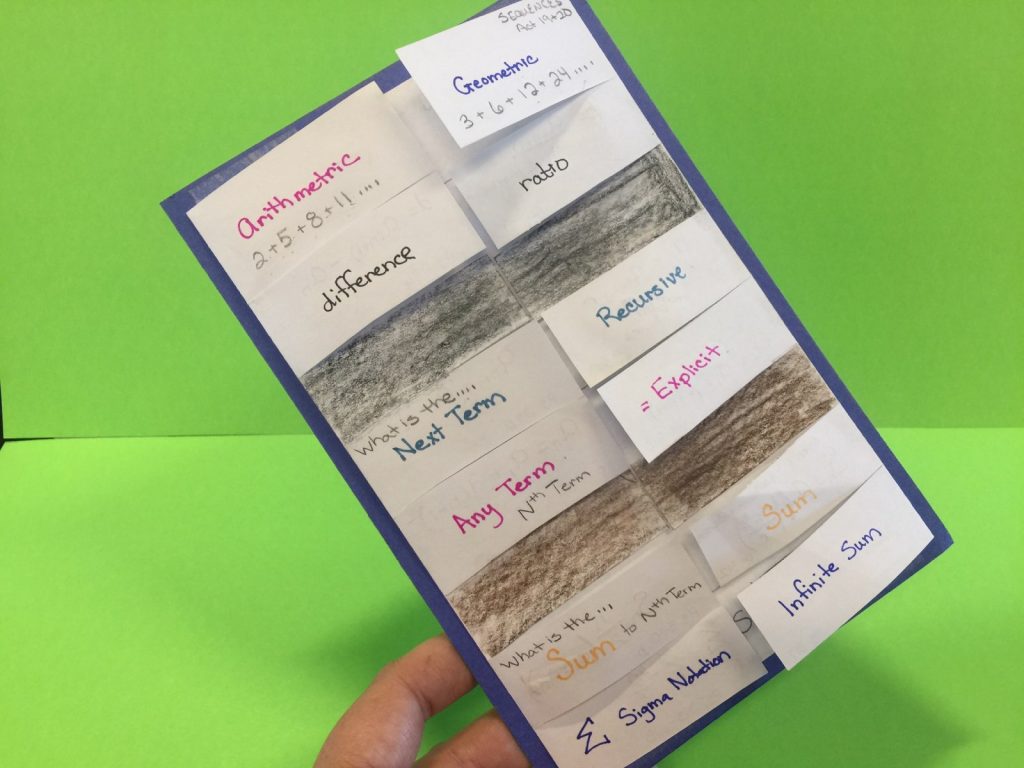 SEQUENCES
Act 19+20
Geometric
3 + 6 + 12 + 24 ....
ratio
Arithmetric
2 + 5 + 8 + 11 ....
difference
Recursive
= Explicit
What is the....
Next Term
Any Term
Nth Term
Sum
Infinite Sum
What is the...
Sum to Nth Term
Σ Sigma Notation
S